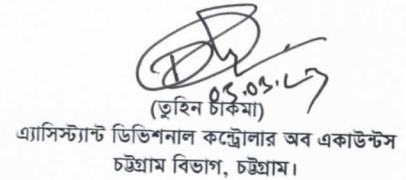 ০৩.০৩.২৭
(তুহিন চাকমা)
এ্যাসিস্ট্যান্ট ডিভিশনাল কন্ট্রোলার অব একাউন্টস
চট্টগ্রাম বিভাগ, চট্টগ্রাম।